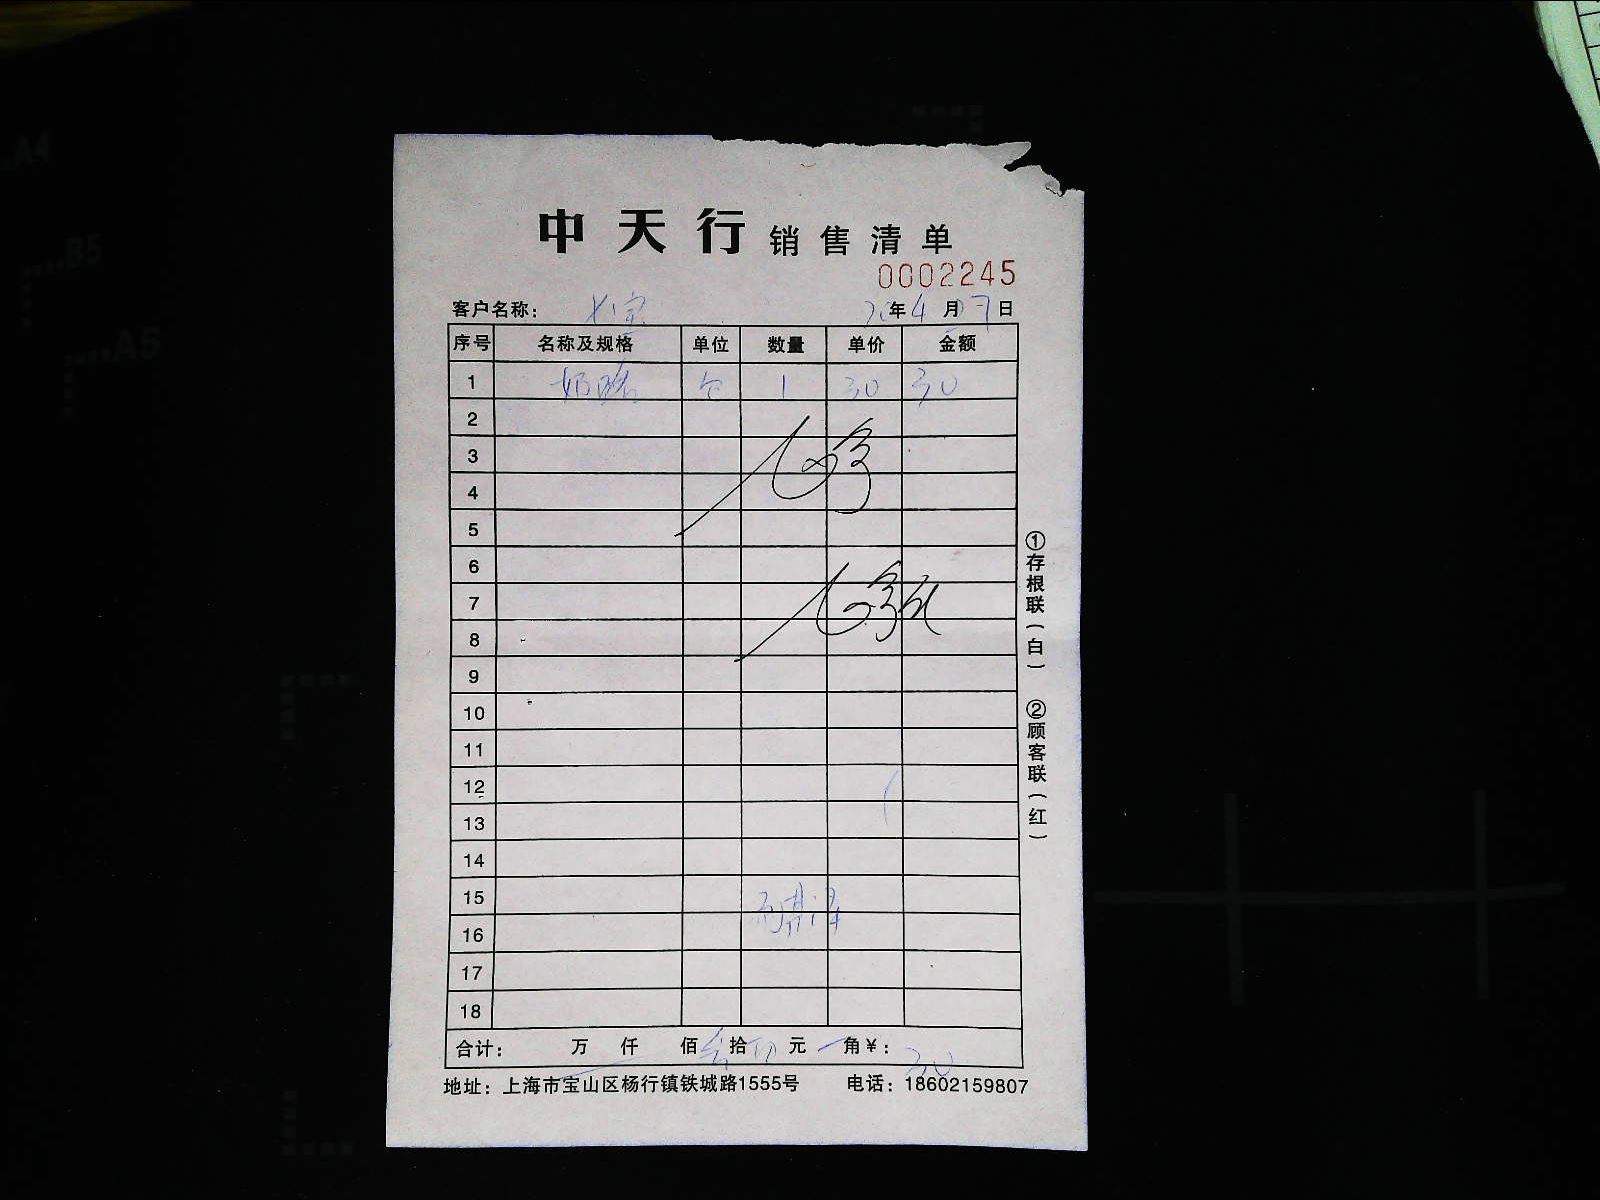 中天行 销售清单
0002245
客户名称： 七宝 年4月27日
序号 名称及规格 单位 数量 单价 金额
1 奶酪 个 1 30 30
2
3
4
5
6
7
8
9
10
11
12
13
14
15
16
17
18
合计： 万 仟 佰 叁 拾 元 角￥： 30
地址：上海市宝山区杨行镇铁城路1555号 电话：18602159807
①存根联（白） ②顾客联（红）